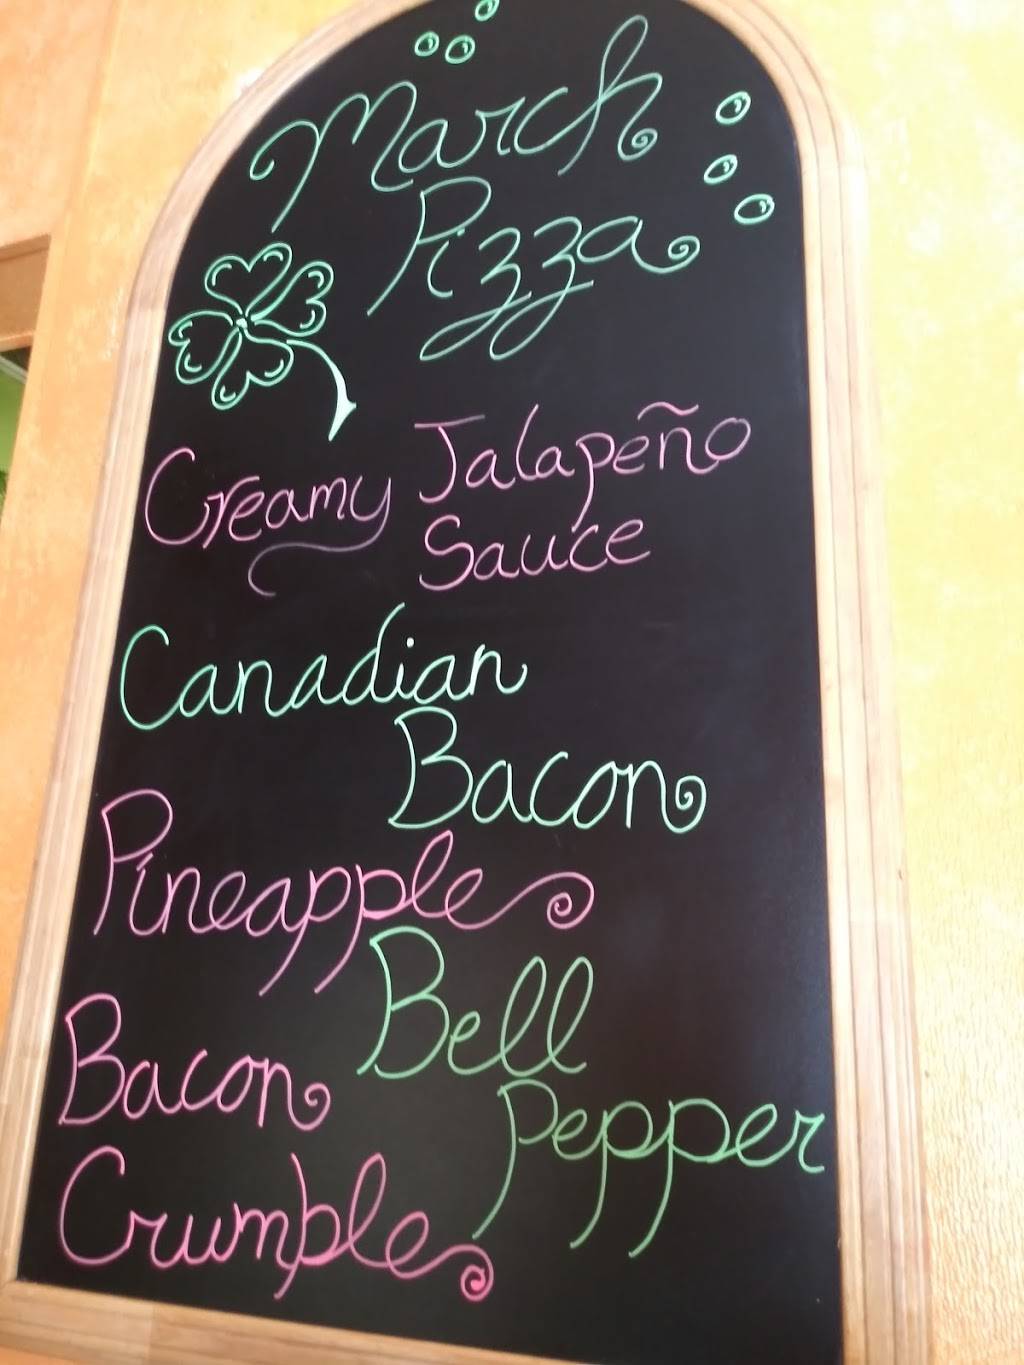 March
Pizza
Creamy Jalapeño
Sauce
Canadian
Bacon
Pineapple
Bell
Pepper
Bacon
Crumble